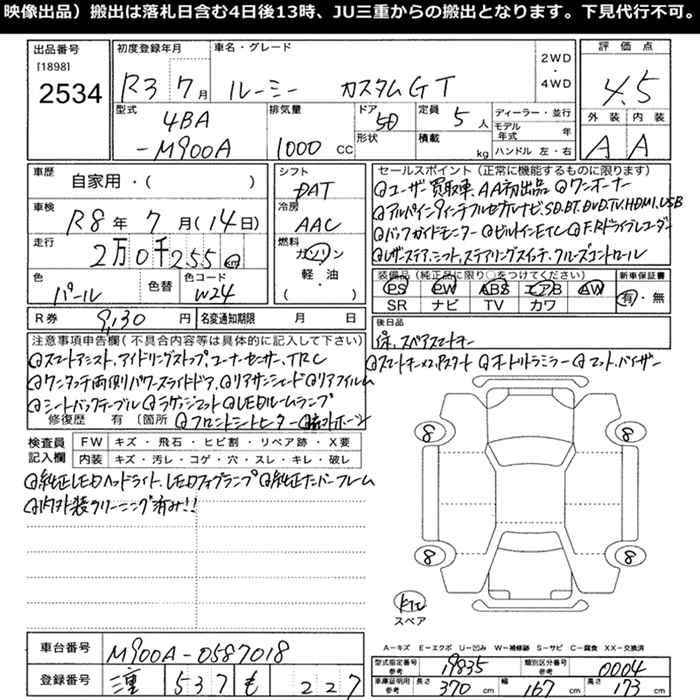 映像出品）搬出は落札日含む4日後13時、JU三重からの搬出となります。下見代行不可。
出品番号
[1898]
2534
初度登録年月
R3 7月
車名・グレード
ルーミー カスタムGT
2WD
・
4WD
評価点
4.5
外装 内装
A A
型式
4BA
-M900A
排気量
1000 CC
ドア
5D
形状
定員
5人
積載
kg
ディーラー・並行
モデル年式 年
ハンドル 左・右
車歴
自家用・( )
車検
R8年 7月(14日)
走行
2万0千255 km
色
パール
色替
色コード
W24
シフト
DAT
冷房
AAC
燃料
ガソリン
軽・油
( )
セールスポイント（正常に機能するものに限ります）
◎ユーザー買取車、AA初出品 ◎ワンオーナー
◎アルパイン9インチフルセグナビ、SD.BT.DVD.TV.HDMI.USB
◎バックガイドモニター ◎ビルトインETC ◎F.Rドライブレコーダー
◎レザーステア、ミット、ステアリングスイッチ、クルーズコントロール
装備品（純正品に限り○をつけてください）
PS PW ABS エアB AW
SR ナビ TV カワ
新車保証書
有・無
R券
9,130円
名変通知期限 月 日
後日品
保、スペアスマートキー
注意事項申告欄(不具合内容等は具体的に記入して下さい)
◎スマートアシスト、アイドリングストップ、コーナーセンサー、TRC
◎ワンタッチ両側パワースライドドア ◎リアサンシェード ◎リアフィルム
◎シートバックテーブル ◎ラゲッジマット ◎LEDルームランプ
修復歴 有 〔箇所 ◎フロントシートヒーター
◎スマートキー×2、Pスタート ◎オートリトラミラー ◎マット、バイザー
検査員記入欄
FW キズ・飛石・ヒビ割・リペア跡・X要
内装 キズ・汚レ・コゲ・穴・スレ・キレ・破レ
◎純正LEDヘッドライト、LEDフォグランプ ◎純正ナンバーフレーム
◎内外装クリーニング済み!!
8
8
8
8
スペア
A－キズ E－エクボ U－凹み W－補修跡 S－サビ C－腐食 XX－交換済
車台番号
M900A-0587018
登録番号
三重 537 も 227
型式指定番号
参考
19835
類別区分番号
参考
0004
車庫証明用
参考
長さ 370 cm 幅 167 cm 高さ 173 cm